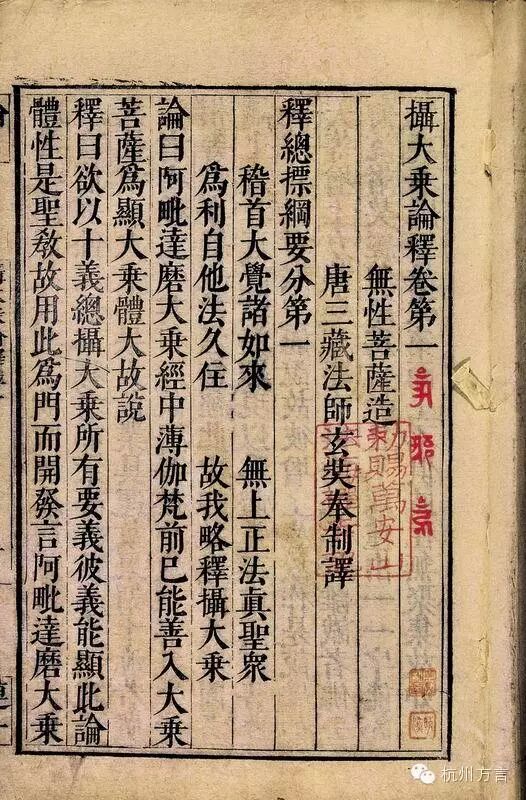 攝大乘論釋卷第一
無性菩薩造
唐三藏法師玄奘奉制譯
釋總摽綱要分第一
稽首大覺諸如來　無上正法真聖衆
為利自他法久住　故我略釋攝大乘
論曰阿毗達磨大乘經中薄伽梵前已能善入大乘
菩薩為顯大乘體大故說
釋曰欲以十義總攝大乘所有要義彼義能顯此論
體性是聖教故用此為門而開發言阿毗達磨大乘
勅賜萬安山
杭州方言